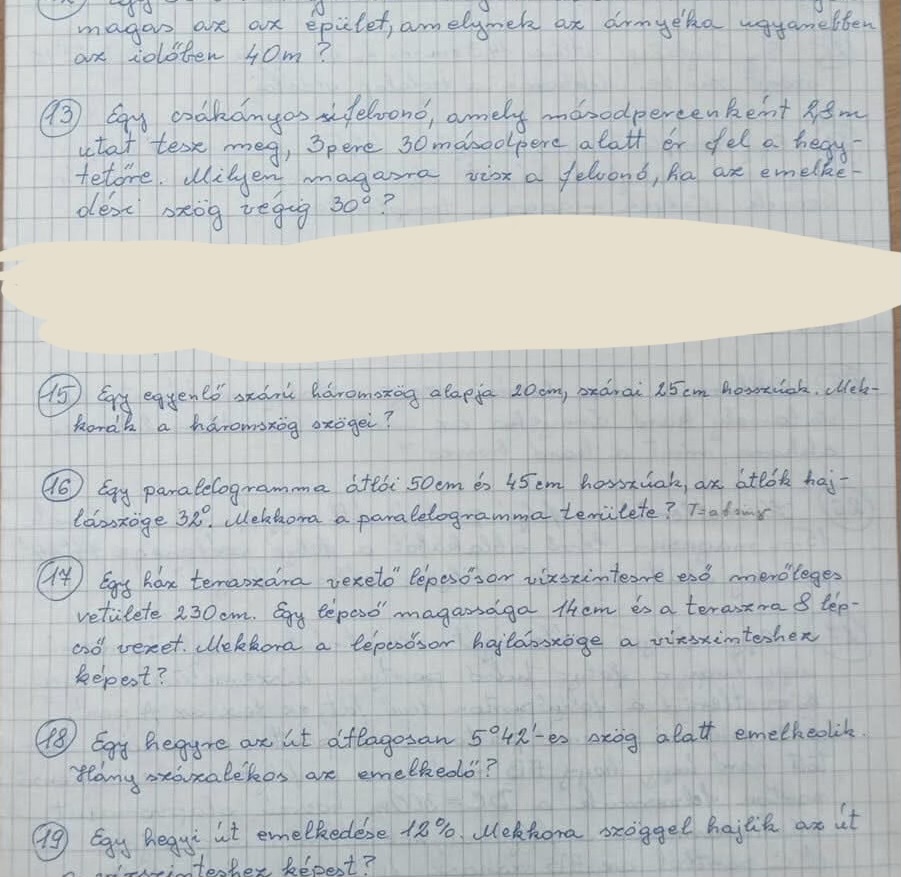 magas az az épület, amelynek az árnyéka ugyanebben
az időben 40m?
13 Egy csákányos sífelvonó, amely másodpercenként 2,3m
utat tesz meg, 3perc 30másodperc alatt ér fel a hegy-
tetőre. Milyen magasra visz a felvonó, ha az emelke-
dési szög végig 30°?
15 Egy egyenlő szárú háromszög alapja 20cm, szárai 25cm hosszúak. Mek-
korák a háromszög szögei?
16 Egy paralelogramma átlói 50cm és 45cm hosszúak, az átlók haj-
lásszöge 32°. Mekkora a paralelogramma területe?
17 Egy ház teraszára vezető lépcsősor vízszintesre eső merőleges
vetülete 230cm. Egy lépcső magassága 14cm és a teraszra 8 lép-
cső vezet. Mekkora a lépcsősor hajlásszöge a vízszinteshez
képest?
18 Egy hegyre az út átlagosan 5°42'-es szög alatt emelkedik.
Hány százalékos az emelkedő?
19 Egy hegyi út emelkedése 12%. Mekkora szöggel hajlik az út
a vízszinteshez képest?